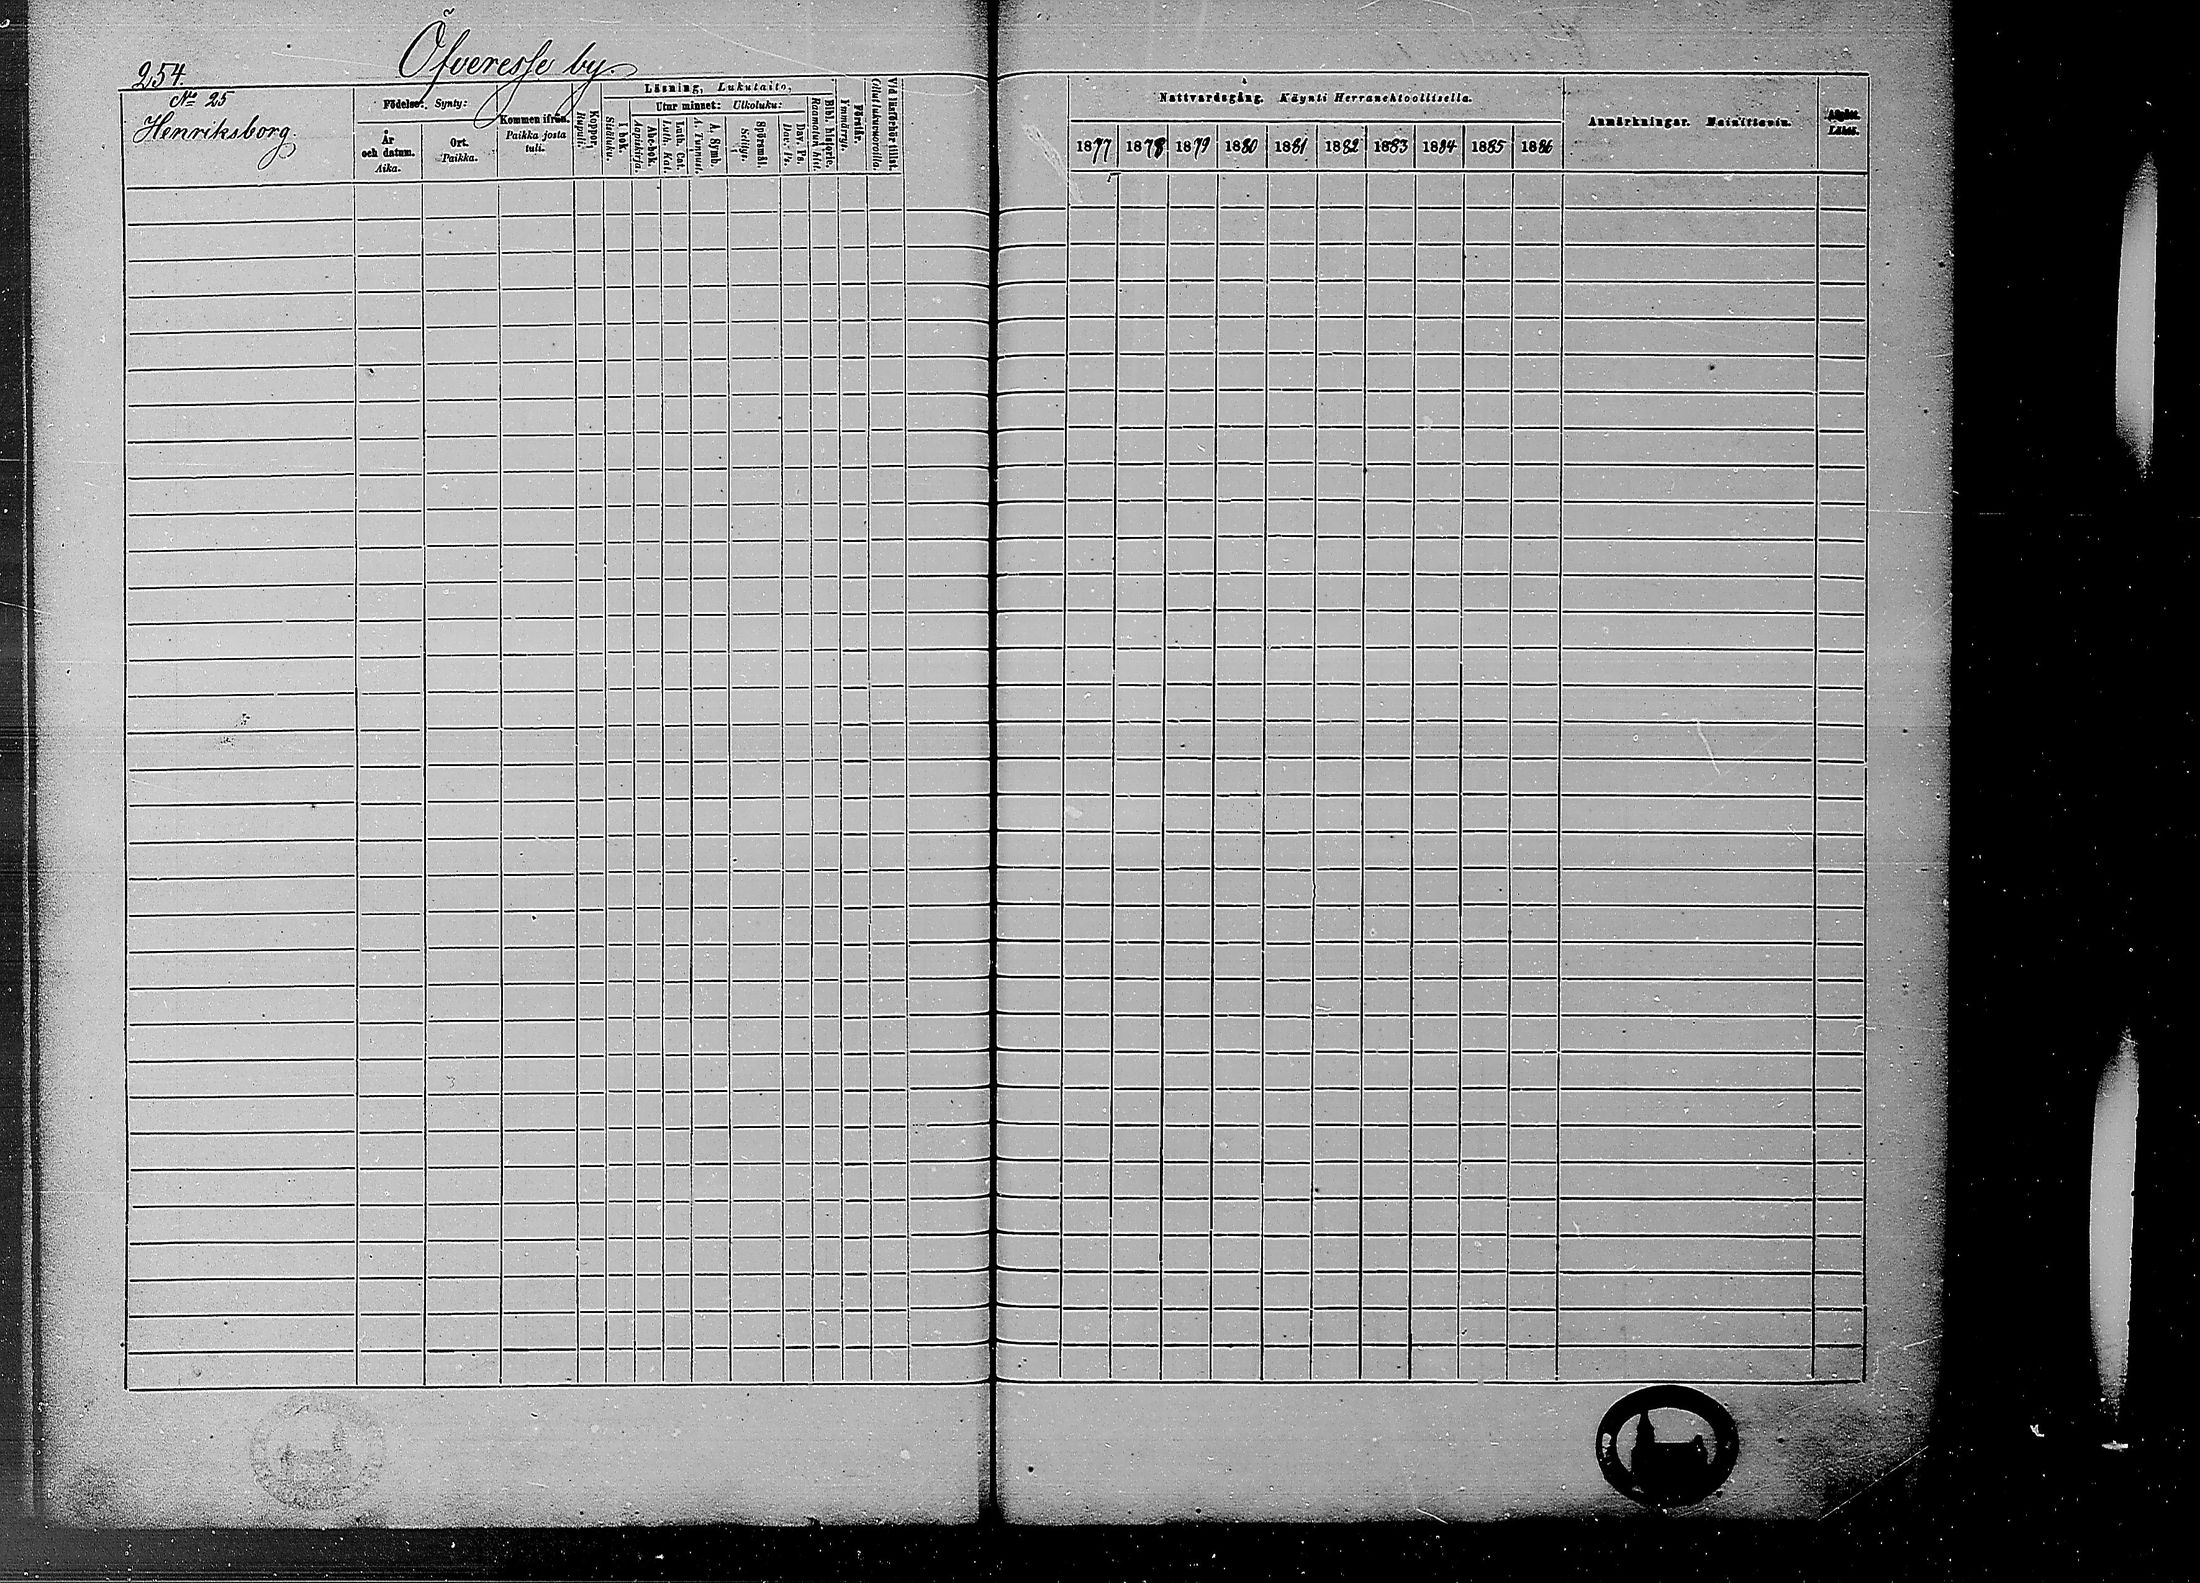 254.
Öfveresse by.
No 25
Henriksborg.
Födelse: Synty:
År och datum. Aika.
Ort. Paikka.
Kommen ifrån. Paikka josta tuli.
Koppor. Rupuli.
Läsning, Lukutaito,
I bok. Sisäluku.
Utur minnet: Ulkoluku:
Abc-bok. Aapiskirja.
Luth. Cat. Luth. Kat.
A. Symb. A. Tunnust.
Spörsmål. Selitys.
Dav. Ps. Dav. Ps.
Bibl. historie. Raamatun hist.
Förstår. Ymmärrys.
Vid läsförhör tillst. Ollut lukuvuoroilla.
Nattvardsgång. Käynti Herranehtoollisella.
1877 1878 1879 1880 1881 1882 1883 1884 1885 1886
Anmärkningar. Muistettavia.